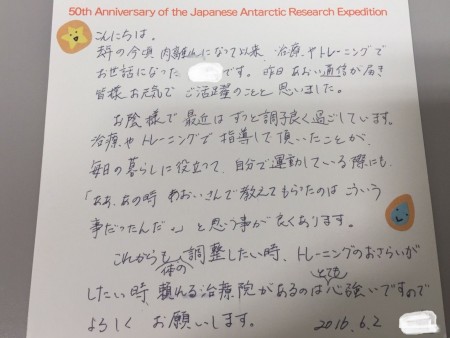 50th Anniversary of the Japanese Antarctic Research Expedition
こんにちは。
昨年の今頃 肉離れになって以来、治療やトレーニングで
お世話になった です。昨日あおい通信が届き
皆様お元気でご活躍のことと思いました。
お陰様で最近はずっと調子良く過ごしています。
治療やトレーニングで指導して頂いたことが、
毎日の暮らしに役立って、自分で運動している際にも、
「ああ、あの時あおいさんで教えてもらったのはこういう
事だったんだ。」と思う事が良くあります。
これからも体の調整したい時、トレーニングのおさらいが
したい時、頼れる治療院があるのはとても心強いですので
よろしくお願いします。 2016.6.2